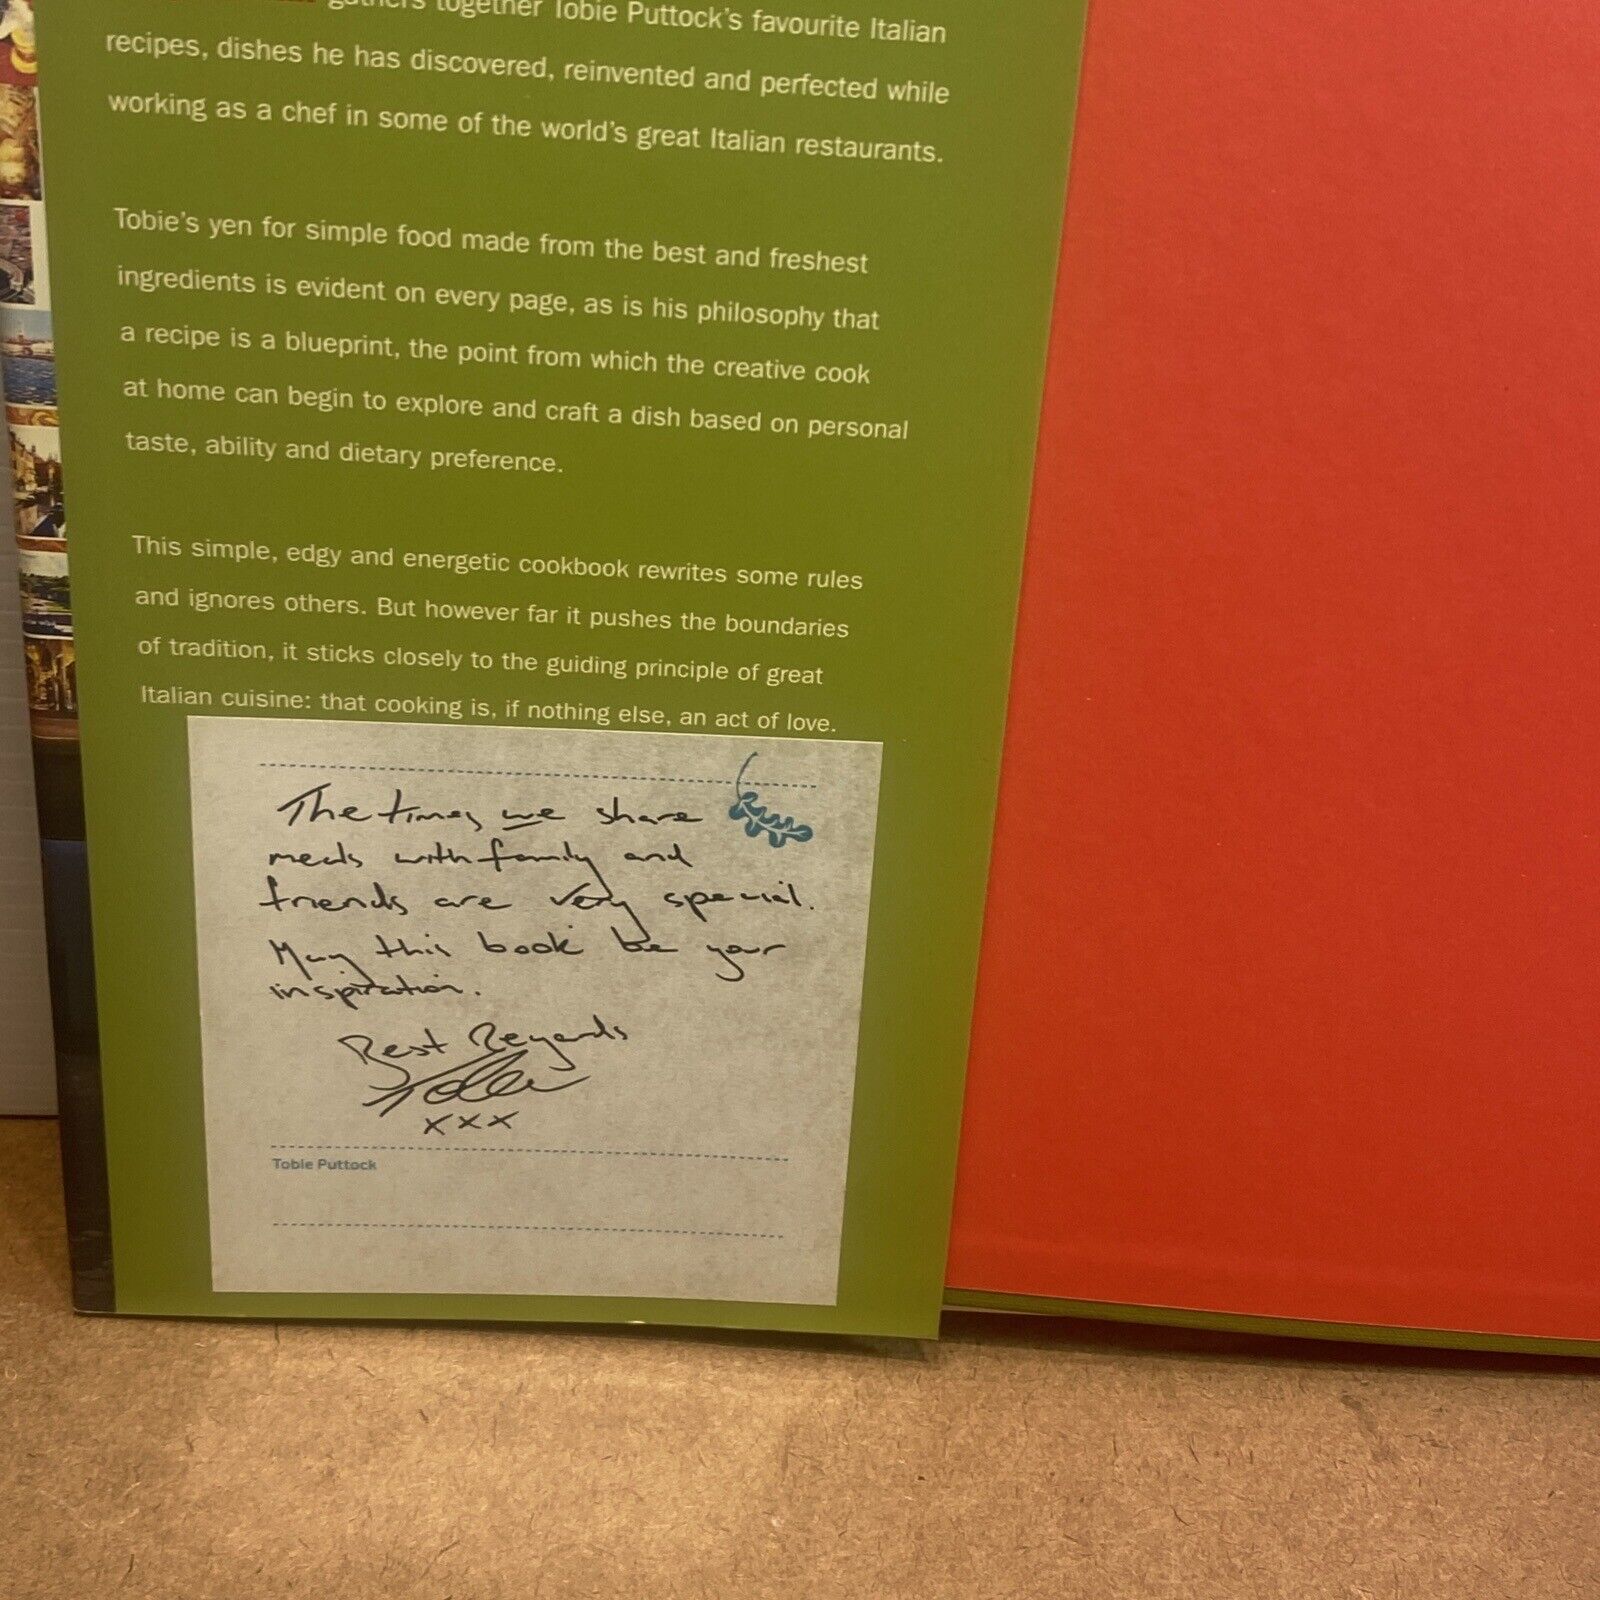 gathers together Tobie Puttock's favourite Italian
recipes, dishes he has discovered, reinvented and perfected while
working as a chef in some of the world's great Italian restaurants.
Tobie's yen for simple food made from the best and freshest
ingredients is evident on every page, as is his philosophy that
a recipe is a blueprint, the point from which the creative cook
at home can begin to explore and craft a dish based on personal
taste, ability and dietary preference.
This simple, edgy and energetic cookbook rewrites some rules
and ignores others. But however far it pushes the boundaries
of tradition, it sticks closely to the guiding principle of great
Italian cuisine: that cooking is, if nothing else, an act of love.
The times we share
meals with family and
friends are very special.
May this book be your
inspiration.
Best Regards
Tobie
xxx
Tobie Puttock